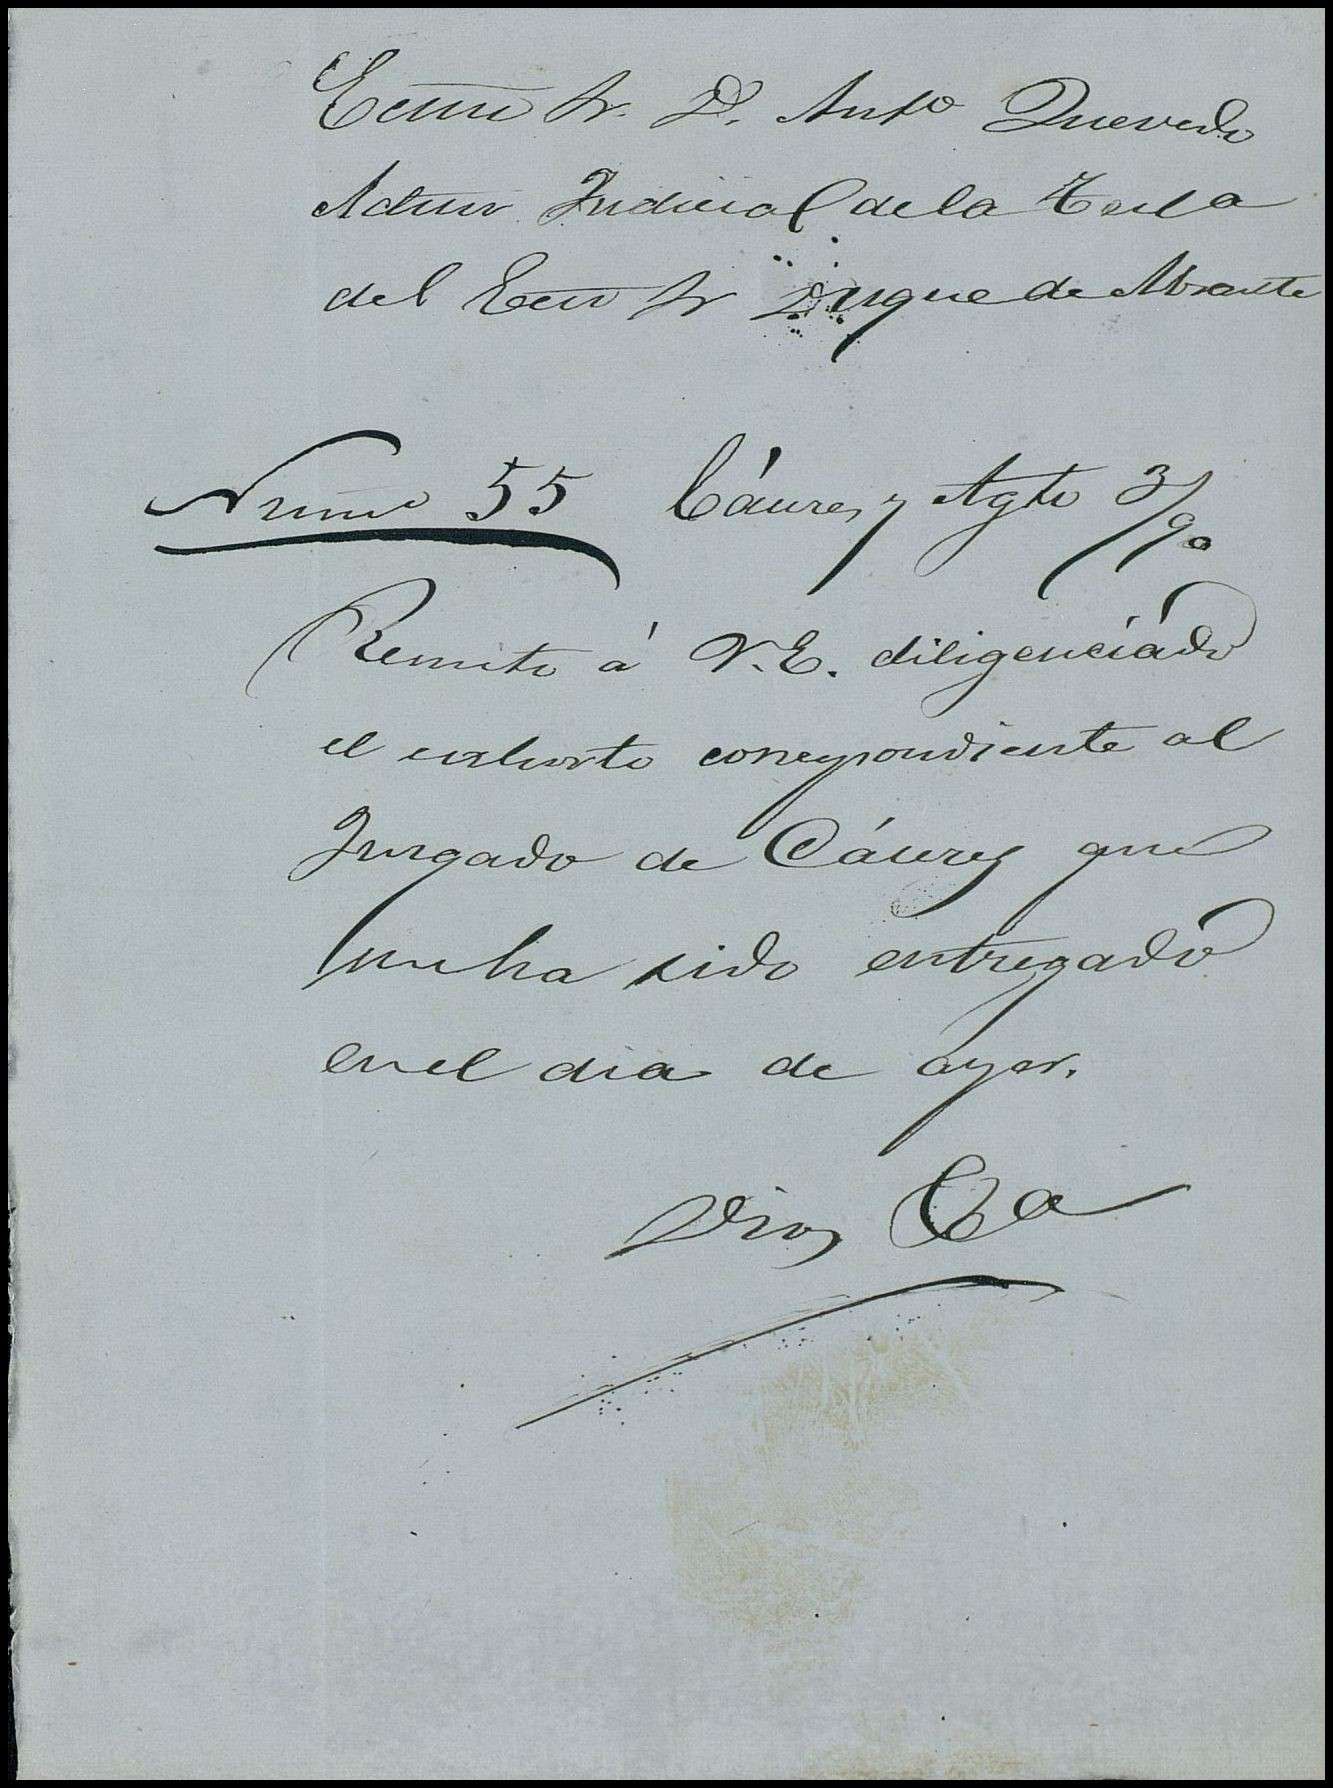 Ecmo Sr. Dn. Anto Quevedo
Admor Judicial de la Testa
del Ecmo Sr Duque de Abrante
Numo 55 Cáceres y Agto 3/90
Remito á V.E. diligenciádo
el exhorto correspondiente al
Juzgado de Cáceres que
me ha sido entregado
en el dia de ayer.
Dios &a